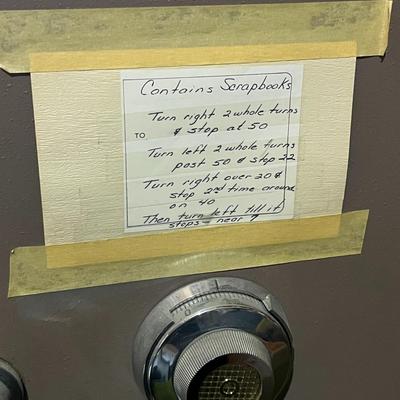 Contains Scrapbooks
Turn right 2 whole turns
TO & stop at 50
Turn left 2 whole turns
past 50 & stop 22
Turn right over 20 &
stop 2nd time around
on 40
Then turn left till it
stops - near 7
0